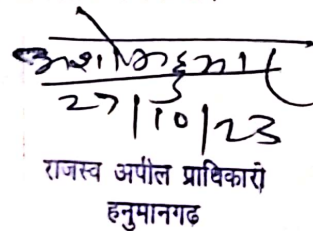 अशोक कुमार
27/10/23
राजस्व अपील प्राधिकारी
हनुमानगढ